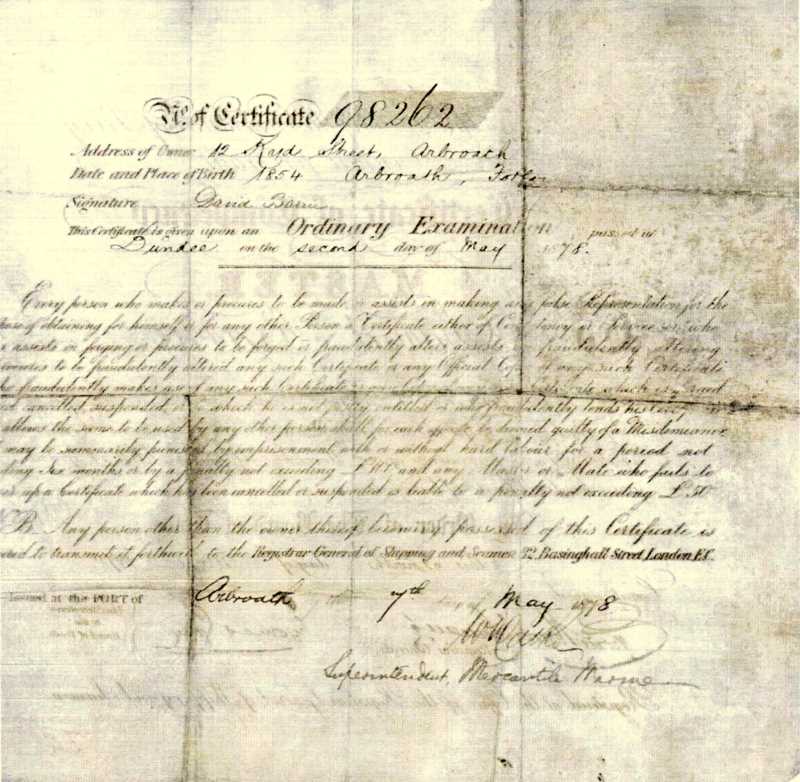 No. of Certificate 98262
Address of Owner 12 Street, Arbroath
Date and Place of Birth 1854 Arbroath,
Signature David Barrie
This Certificate is given upon an Ordinary Examination passed at
Dundee on the second day of May 1878.
Every person who makes or procures to be made or assists in making any false Representation for the
of obtaining for himself or for any other Person a Certificate either of or Service or who
assists in forging or procures to be forged or fraudulently alters assists in fraudulently altering
to be fraudulently altered any such Certificate or any Official Copy of any such Certificate
fraudulently makes use of any such Certificate or which is
cancelled, suspended, or to which he is not justly entitled or who fraudulently lends his
allows the same to be used by any other person shall for each offence be deemed guilty of a Misdemeanor
may be summarily punished by imprisonment with or without hard labour for a period not
Six months or by a penalty not exceeding £ and any Master or Mate who fails to
up a Certificate which has been cancelled or suspended is liable to a penalty not exceeding £50
B. Any person other than the owner thereof becoming possessed of this Certificate is
to transmit it forthwith to the Registrar General of Shipping and Seamen 82 Basinghall Street London E.C.
Issued at the PORT of Arbroath 7th day of May 1878
Superintendent, Mercantile Marine